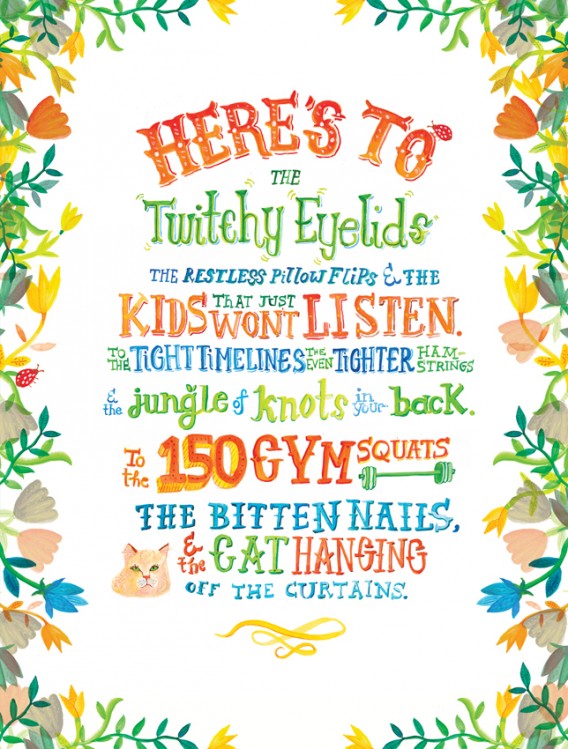 HERE'S TO
THE
Twitchy Eyelids
THE RESTLESS PILLOW FLIPS & THE
KIDS THAT JUST WONT LISTEN.
TO THE TIGHT TIMELINES THE EVEN TIGHTER HAM-STRINGS
& the jungle of knots in your back.
To the 150 GYM SQUATS
THE BITTEN NAILS,
& the CAT HANGING
OFF THE CURTAINS.